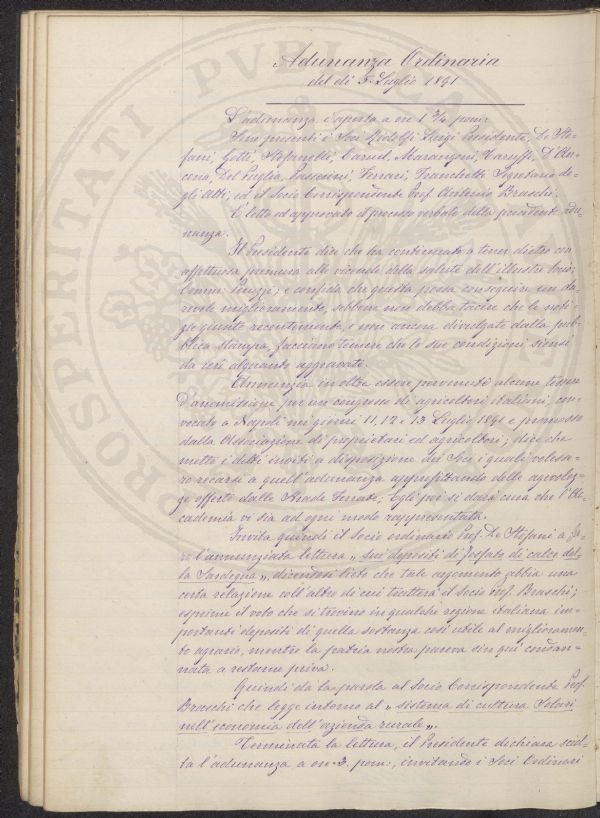 Adunanza Ordinaria
del dì 5 Luglio 1891
L'adunanza è aperta a ore 1 3/4 pom:
Sono presenti i Soci Ridolfi Luigi Presidente, De Ste=
fani, Gotti, Stefanelli, Caruel, Marangoni, Naruffi, D'An=
cona, Del Puglia, Passerini, Ferrari, Franchetti Segretario de=
gli Atti, ed il Socio Corrispondente Prof. Antonio Braschi.
È letto ed approvato il processo verbale della precedente adu=
nanza.
Il Presidente dice che ha continuato a tener dietro con
affettuosa premura alle vicende della salute dell'illustre socio
Comm. Peruzzi; e confida che questa possa conseguire un du=
revole miglioramento, sebbene non debba tacere che le noti=
zie giunte recentemente, e non ancora divulgate dalla pub=
blica stampa, facciano temere che le sue condizioni siensi
da ieri alquanto aggravate.
Annunzia inoltre essere pervenute alcune tessere
d'ammissione per un congresso di agricoltori italiani, con=
vocato a Napoli nei giorni 11, 12 e 13 Luglio 1891 e promosso
dalla Associazione di proprietari ed agricoltori; dice che
mette i detti inviti a disposizione dei Soci i quali volesse=
ro recarsi a quell'adunanza approfittando delle agevolez=
ze offerte dalle Strade Ferrate. Egli poi si darà cura che l'Ac=
cademia vi sia ad ogni modo rappresentata.
Invita quindi il Socio ordinario Prof. De Stefani a fa=
re l'annunziata lettura „ sui depositi di fosfato di calce del=
la Sardegna „, dicendosi lieto che tale argomento abbia una
certa relazione coll'altro di cui tratterà il Socio Prof. Braschi;
esprime il voto che si trovino in qualche regione italiana im=
portanti depositi di quella sostanza così utile al miglioramen=
to agrario, mentre la patria nostra pareva sin qui condan=
nata a restarne priva.
Quindi dà la parola al Socio Corrispondente Prof.
Braschi che legge intorno al „ sistema di cultura Solari
nell'economia dell'azienda rurale „.
Terminata la lettura, il Presidente dichiara sciol=
ta l'adunanza a ore 3. pom:, invitando i Soci Ordinari
PROSPERITATI PVBLICAE